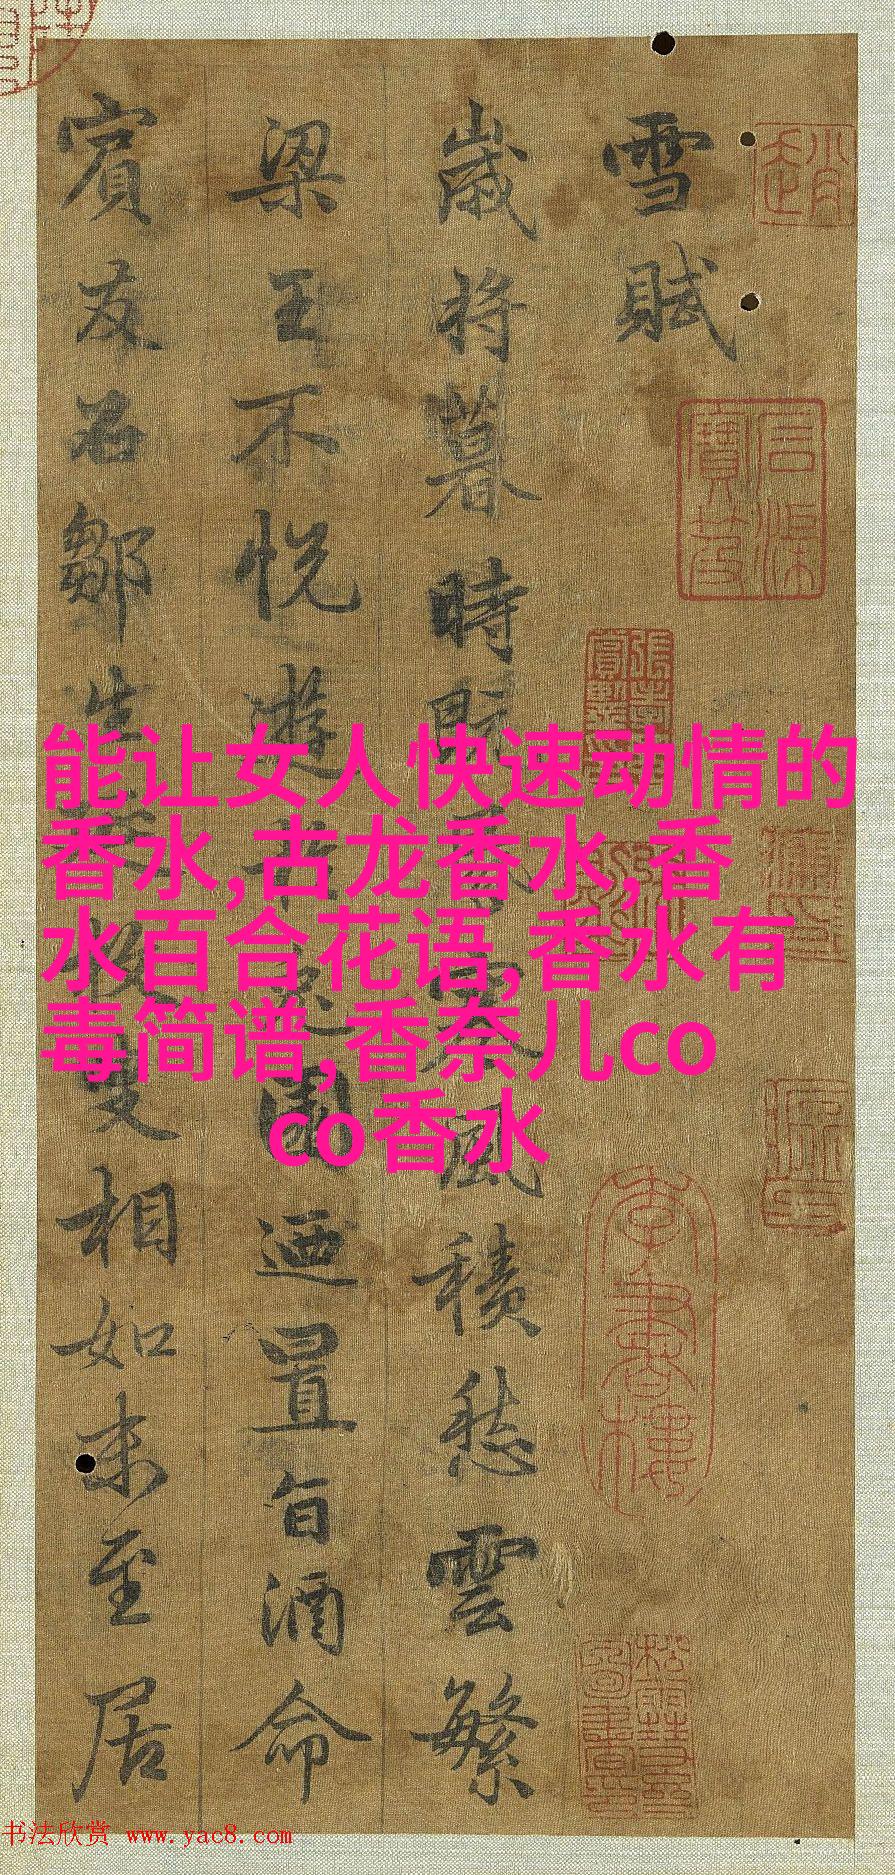 雪賦
歲將暮時既昏寒風積愁雲繁
梁王不悅遊於兔園迺置旨酒命
賓友召鄒生延枚叟相如末至居
能让女人快速动情的
香水,古龙香水,香
水百合花语,香水有
毒简谱,香奈儿co
co香水
书法欣赏 www.yac8.com